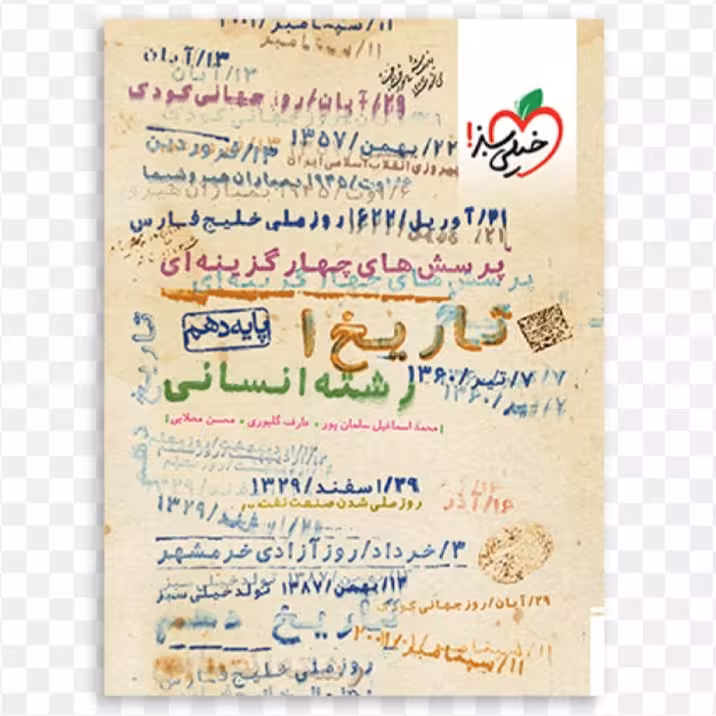 ۱۱/سپتامبر/۲۰۰۱
۱۱/سپتامبر
۱۳/آبان
۱۳/آبان
۲۹/آبان/روز جهانی کودک
خیلی سبز!
۲۲/بهمن/۱۳۵۷
پیروزی انقلاب اسلامی ایران
۱۳/فروردین
۶/اوت/۱۹۴۵ بمباران هیروشیما
۲۱/آوریل/۱۶۲۲ روز ملی خلیج فارس
پرسش‌های چهارگزینه‌ای
پرسش‌های چهارگزینه‌ای
تاریخ ۱
پایه دهم
۷/تیر/۱۳۶۰
رشته انسانی
محمد اسماعیل سلمان پور • عارف گلپوری • محسن محلایی
تاریخ دهم
۲۹/اسفند/۱۳۲۹
روز ملی شدن صنعت نفت
۱۶/آذر
۳/خرداد/روز آزادی خرمشهر
۱۲/بهمن/۱۳۸۷ تولد خیلی سبز
۲۹/آبان/روز جهانی کودک
تاریخ دهم
۱۱/سپتامبر/۲۰۰۱
۱۱/سپتامبر
روز ملی خلیج فارس